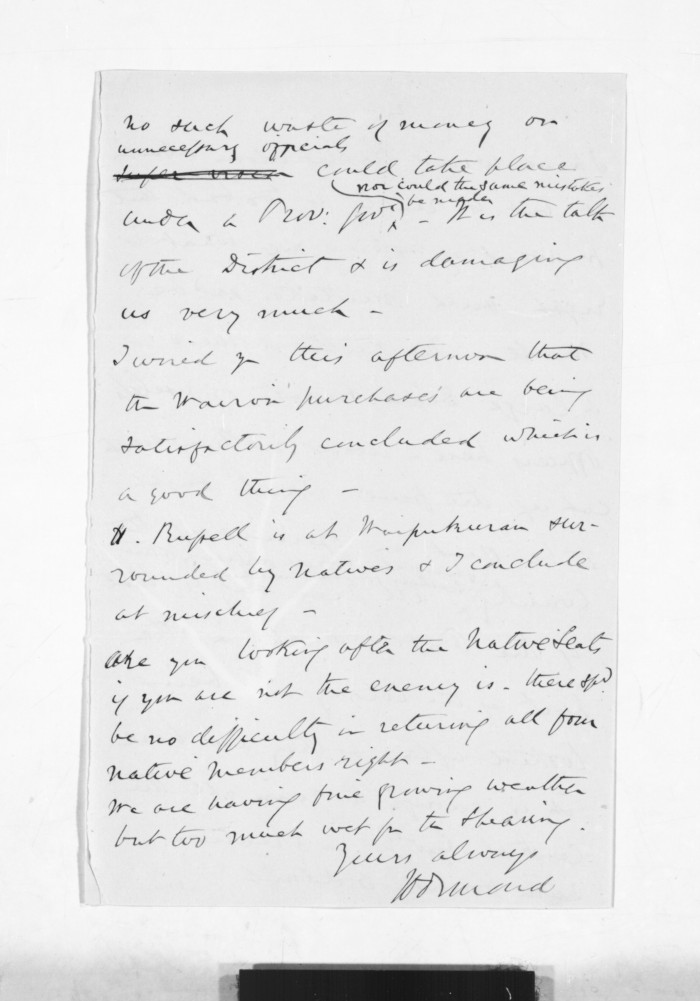 no such waste of money on
unnecessary officials
could take place
nor could the same mistakes
be made
under a Prov: Govt - It is the talk
of the District & is damaging
us very much -
I wired yu this afternoon that
the Wairoa purchases are being
satisfactorily concluded which is
a good thing -
H. Russell is at Waipukurau sur-
rounded by natives & I conclude
at mischief -
Are you looking after the Native Seats
if you are not the enemy is - there shd
be no difficulty in returning all four
native members right -
We are having fine growing weather
but too much wet for the shearing.
Yours always
JDOrmond